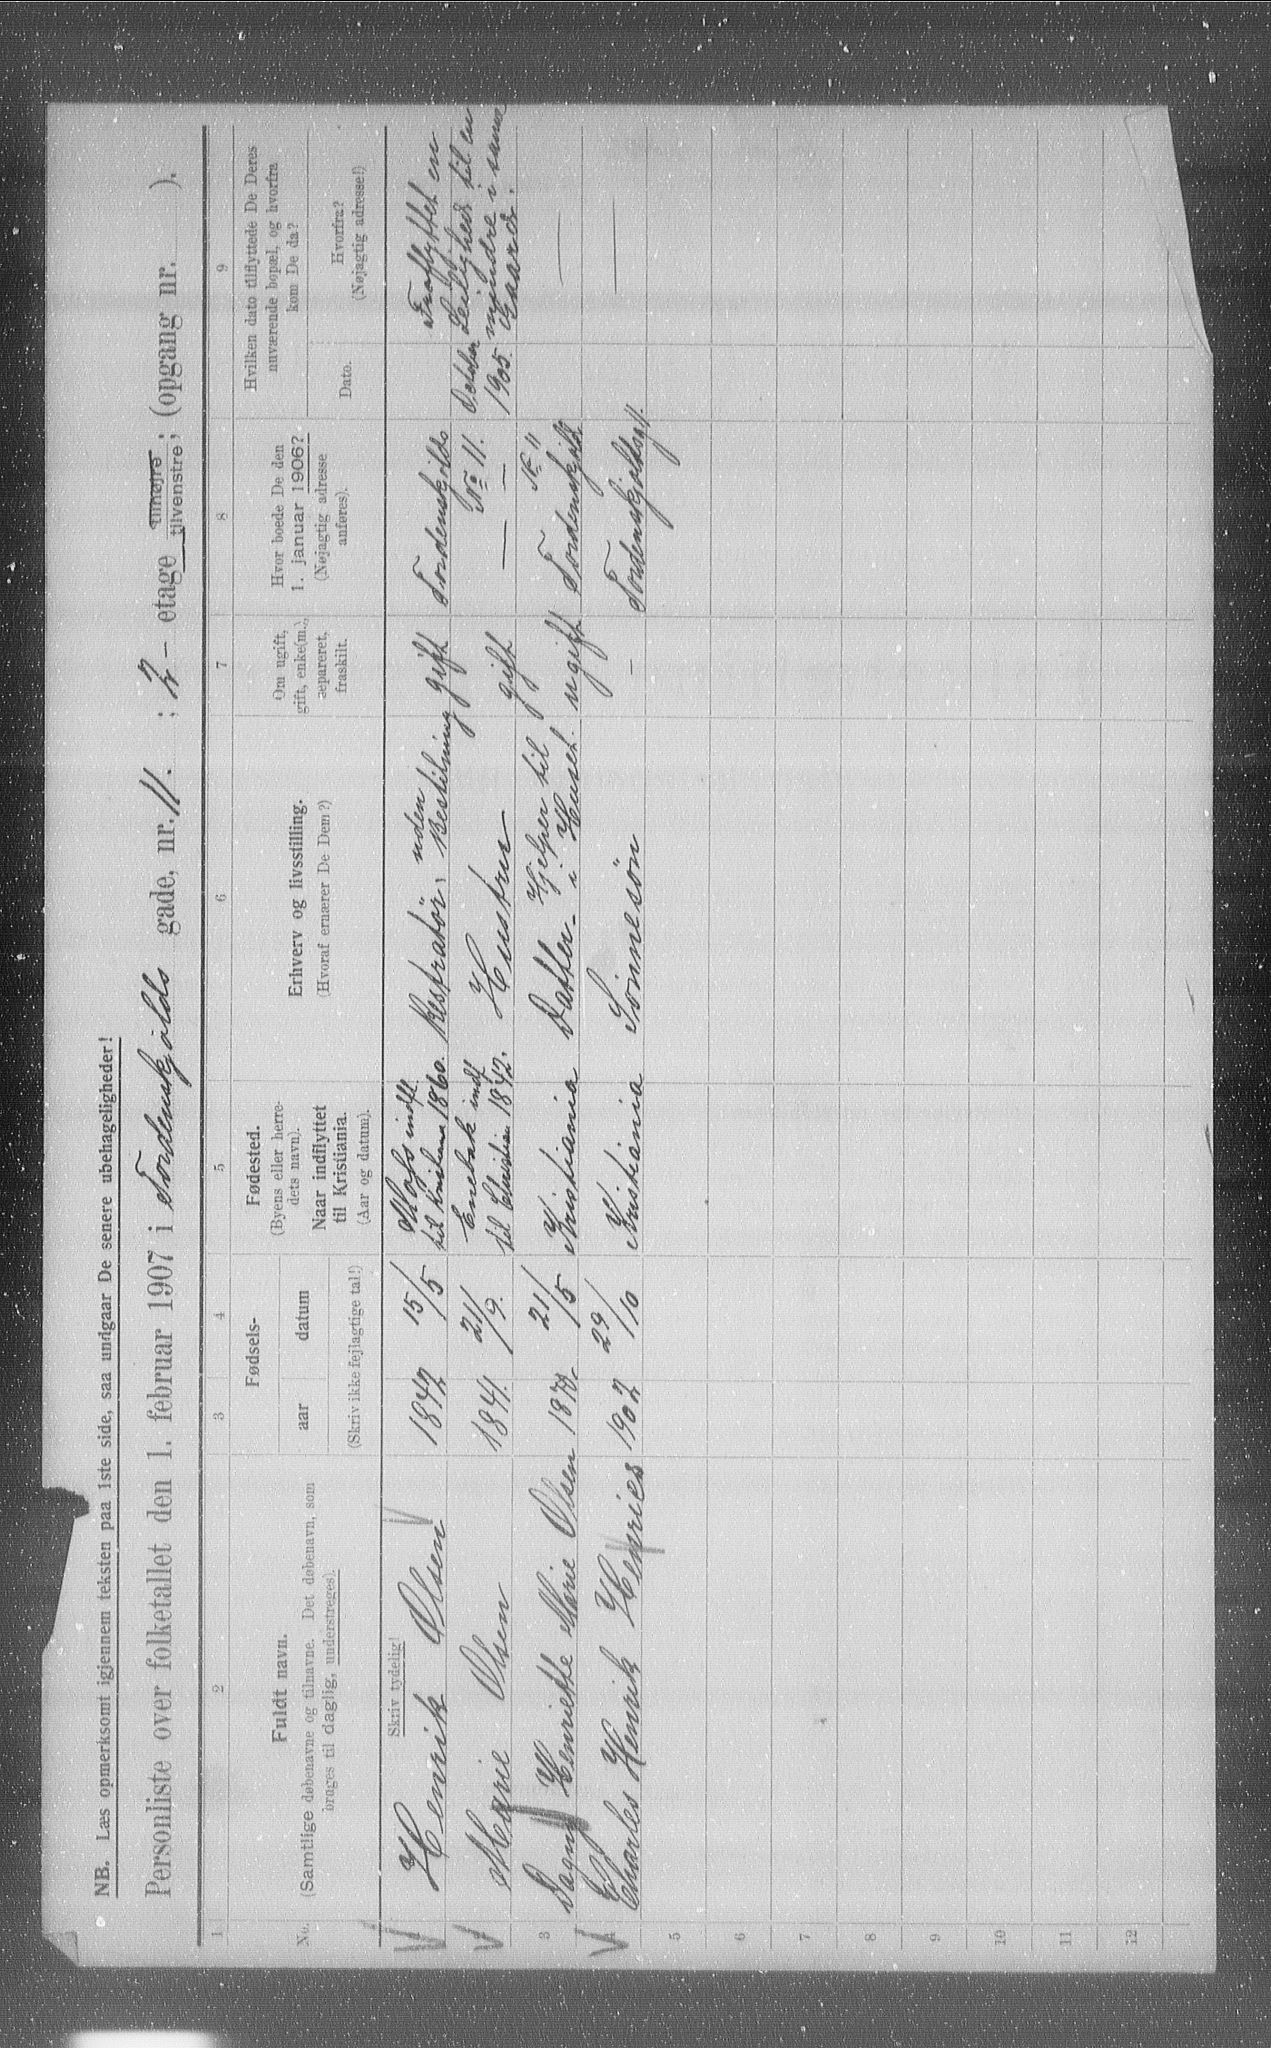 NB. Læs opmerksomt igjennem teksten paa 1ste side, saa undgaar De senere ubehageligheder!
Personliste over folketallet den 1. februar 1907 i Tordenskjolds gade, nr. 11. ; 2 – etage tilhøjre tilvenstre; (opgang nr. ).
1 2 3 4 5 6 7 8 9
No.
Fuldt navn.
(Samtlige døbenavne og tilnavne. Det døbenavn, som
bruges til daglig, understreges).
Fødsels-
aar datum
(Skriv ikke fejlagtige tal!)
Fødested.
(Byens eller herre-
dets navn).
Naar indflyttet
til Kristiania.
(Aar og datum).
Erhverv og livsstilling.
(Hvoraf ernærer De Dem?)
Om ugift,
gift, enke(m.),
separeret,
fraskilt.
Hvor boede De den
1. januar 1906?
(Nøjagtig adresse
anføres).
Hvilken dato tilflyttede De Deres
nuværende bopæl, og hvorfra
kom De da?
Dato.
Hvorfra?
(Nøjagtig adresse!)
Skriv tydelig!
1 Henrik Olsen 1842 15/5 Moss indfl. til Kristiania 1860. uden Bestilning gift Tordenskjolds No 11.
2 Marie Olsen 1841. 21/9. Enebak indf til Christian 1842. Hustru gift — —
October 1905. Fraflyttet en Leilighed til en mindre i samme Gaard.
3 Dagny Henriette Marie Olsen 21/5 Kristiania Datter – Hjelper til i Huset. ugift Tordenskjolds No 11 —
4 Charles Henrik Henries 1902 29/10 Kristiania Sönnesön – Tordenskjoldsg 11. —
5
6
7
8
9
10
11
12